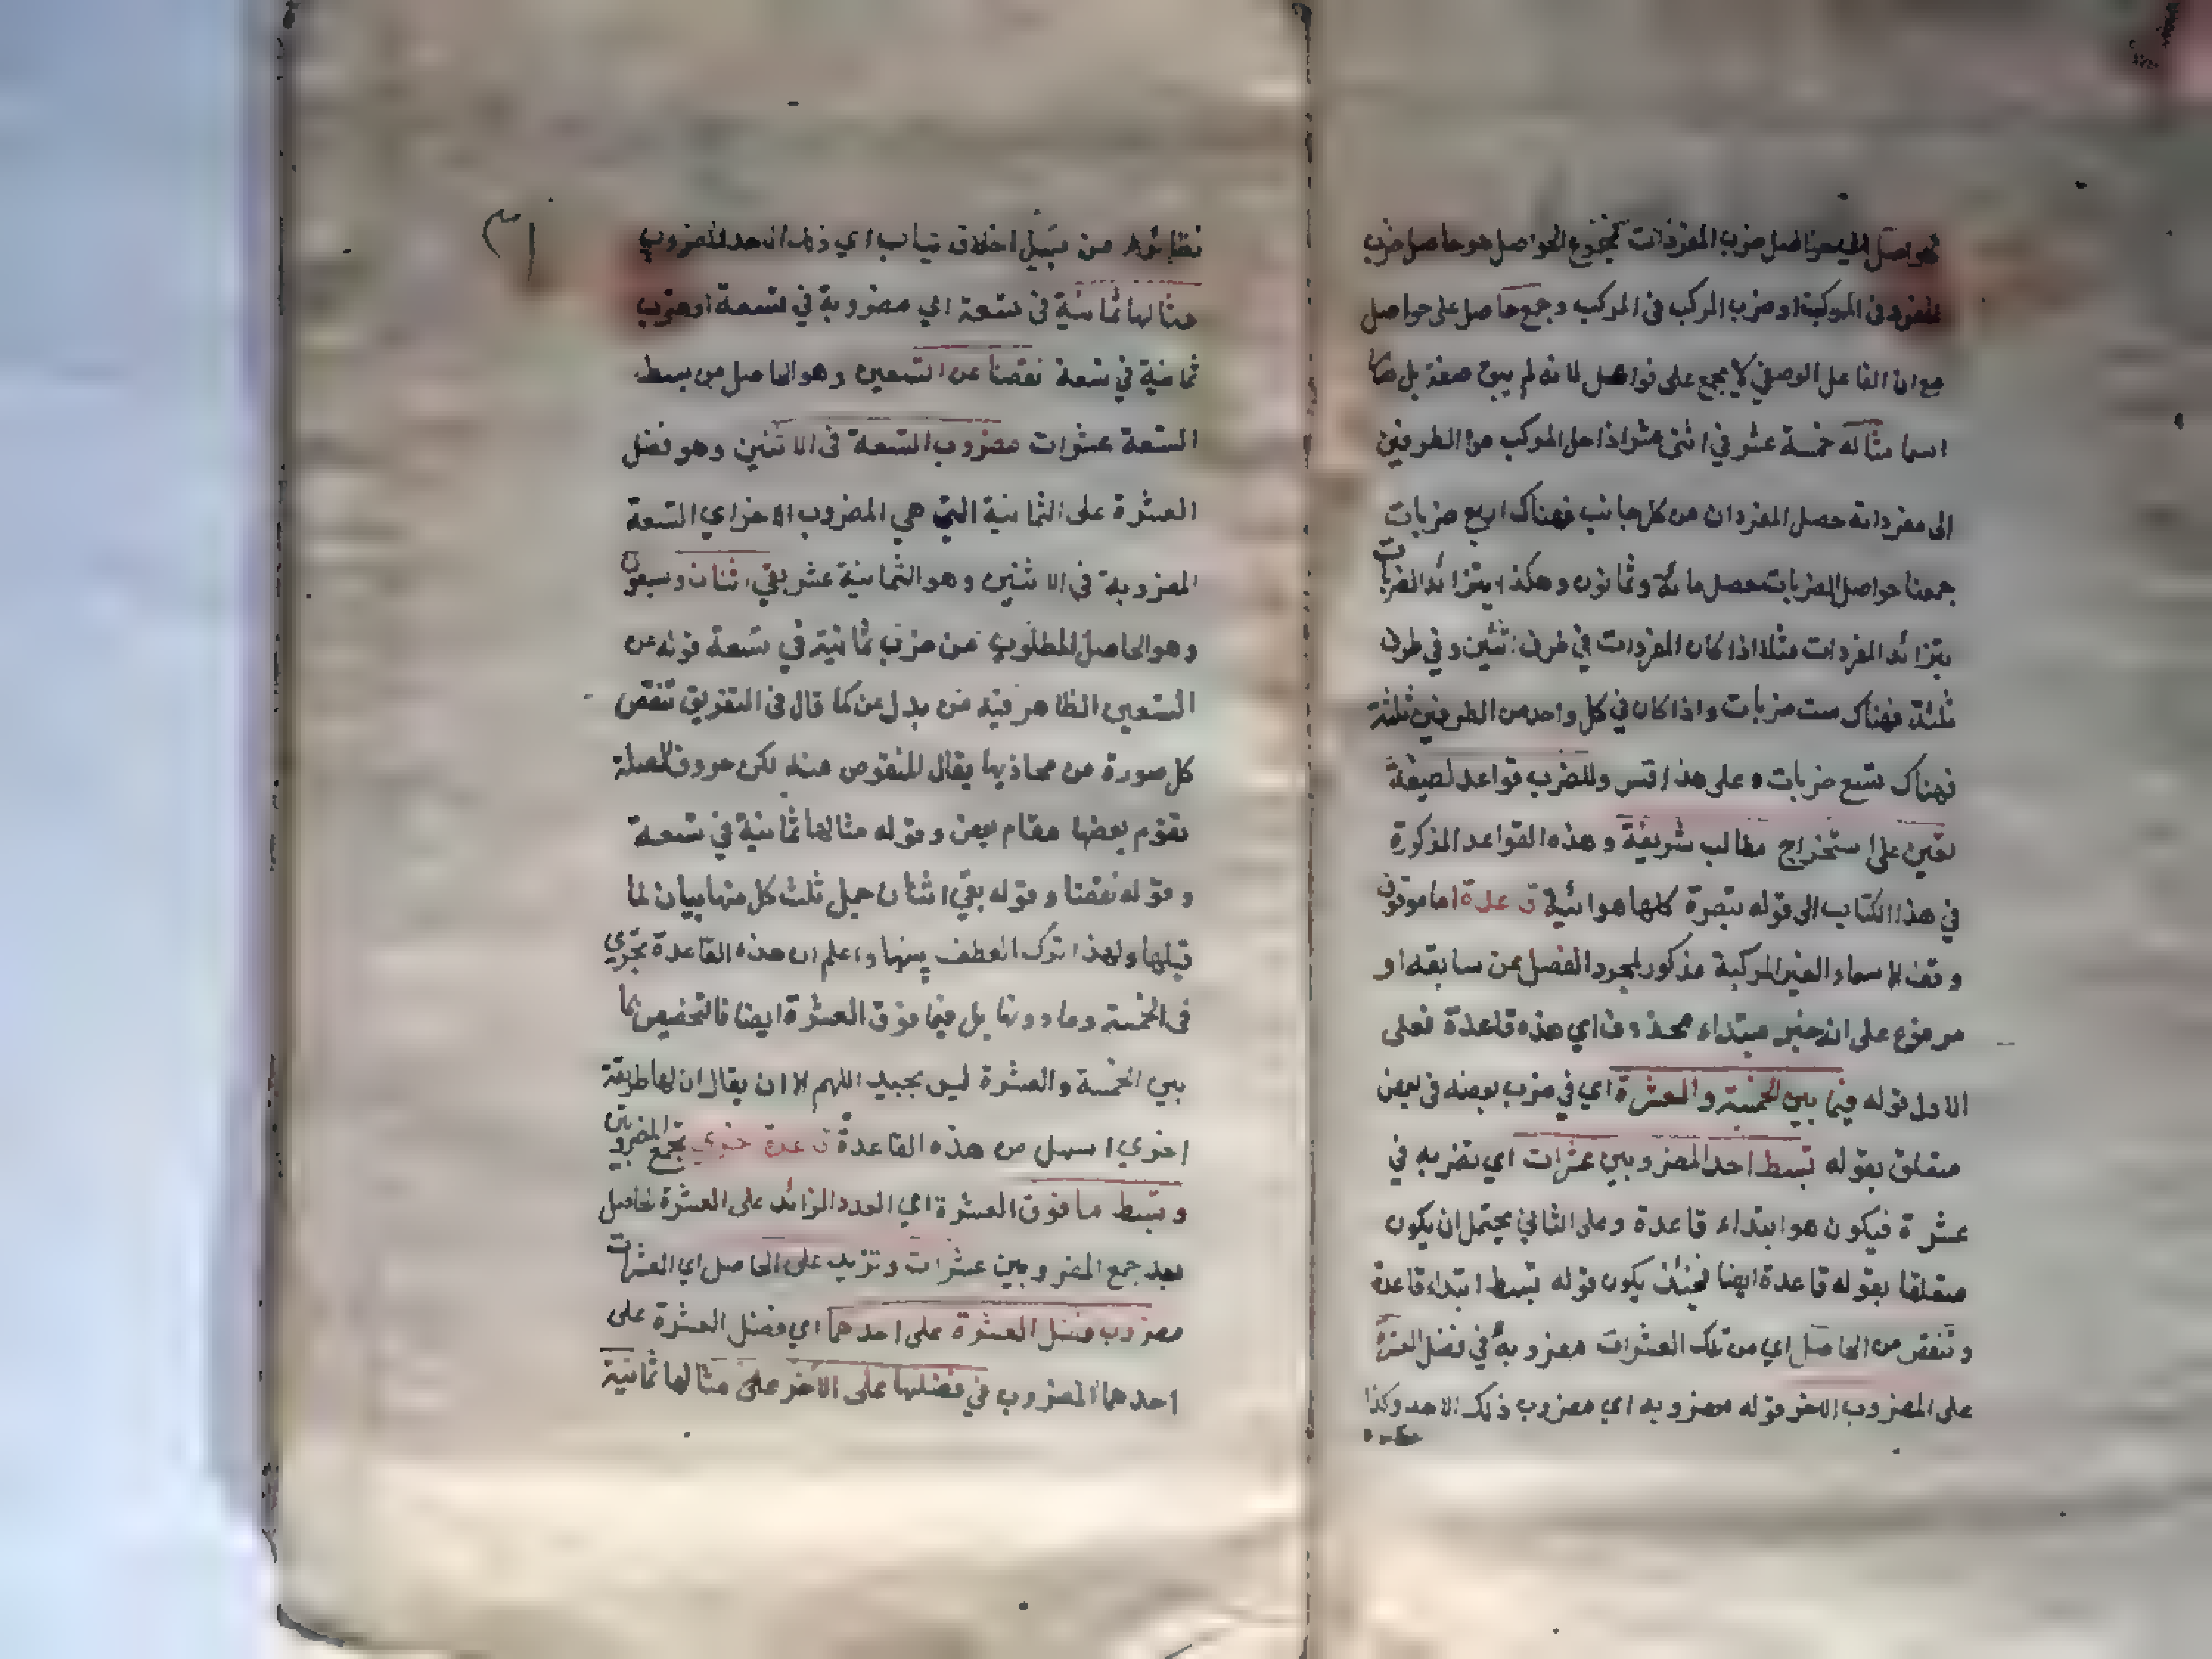 الحواصل اي حواصل ضرب المفردات فمجموع الحواصل هو حاصل ضرب
المفرد في المركب او ضرب المركب في المركب وجمع حاصل على حواصل
مع ان الفاعل الوصفي لا يجمع على فواعل لانه لم يبق صفة بل صار
اسما مثاله خمسة عشر في اثنى عشر اذا حل المركب من الطرفين
الى مفرداته حصل المفردان من كل جانب فهناك اربع ضربات
جمعنا حواصل الضربات حصل مائة وثمانون وهكذا يتزائد الضربات
بتزائد المفردات مثلا اذا كان المفردات في طرف اثنين وفي طرف
ثلثة فهناك ست ضربات واذا كان في كل واحد من الطرفين ثلثة
فهناك تسع ضربات وعلى هذا قس وللضرب قواعد لطيفة
تعين على استخراج مطالب شريفة وهذه القواعد المذكورة
في هذا الكتاب الى قوله تبصرة كلها هوائية قاعدة اما موقوف
وقف الاسماء الغير المركبة مذكور لمجرد الفصل عن سابقه او
مرفوع على انه خبر مبتداء محذوف اي هذه قاعدة فعلى
الاول قوله فيما بين الخمسة والعشرة اي في ضرب بعضه في بعض
متعلق بقوله تبسط احد المضروبين عشرات اي تضربه في
عشرة فيكون هو ابتداء قاعدة وعلى الثاني يحتمل ان يكون
متعلقا بقوله قاعدة ايضا فحينئذ يكون قوله تبسط ابتداء قاعدة
وتنقص من الحاصل اي من تلك العشرات مضروبه في فضل العشرة
على المضروب الاخر قوله مضروبه اي مضروب ذلك الاحد وكذا
نظائره من قبيل اخلاق ثياب اي ذلك الاحد المضروب
مثالها ثمانية في تسعة اي مضروبة في تسعة او ضرب
ثمانية في تسعة نقصنا عن التسعين وهو الحاصل من بسط
التسعة عشرات مضروب التسعة في الاثنين وهو فضل
العشرة على الثمانية التي هي المضروب الاخر اي التسعة
المضروبة في الاثنين وهو الثمانية عشر بقي اثنان وسبعون
وهو الحاصل المطلوب من ضرب ثمانية في تسعة قوله عن
التسعين الظاهر فيه من بدل عن كما قال في التفريق تنقص
كل صورة من محاذيها يقال المنقوص منه لكن حروف الصلة
يقوم بعضها مقام بعض وقوله مثالها ثمانية في تسعة
وقوله نقصنا وقوله بقي اثنان جمل ثلث كل منها بيان لما
قبلها ولهذا ترك العطف بينها واعلم ان هذه القاعدة تجري
في الخمسة وما دونها بل فيما فوق العشرة ايضا فالتخصيص بما
بين الخمسة والعشرة ليس بجيد اللهم الا ان يقال ان لها طريقة
اخرى اسهل من هذه القاعدة قاعدة اخرى تجمع المضروبين
وتبسط ما فوق العشرة اي العدد الزائد على العشرة الحاصل
بعد جمع المضروبين عشرات وتزيد على الحاصل اي العشرات
مضروب فضل العشرة على احدهما اي فضل العشرة على
احدهما المضروب في فضلها على الاخر مثالها ثمانية